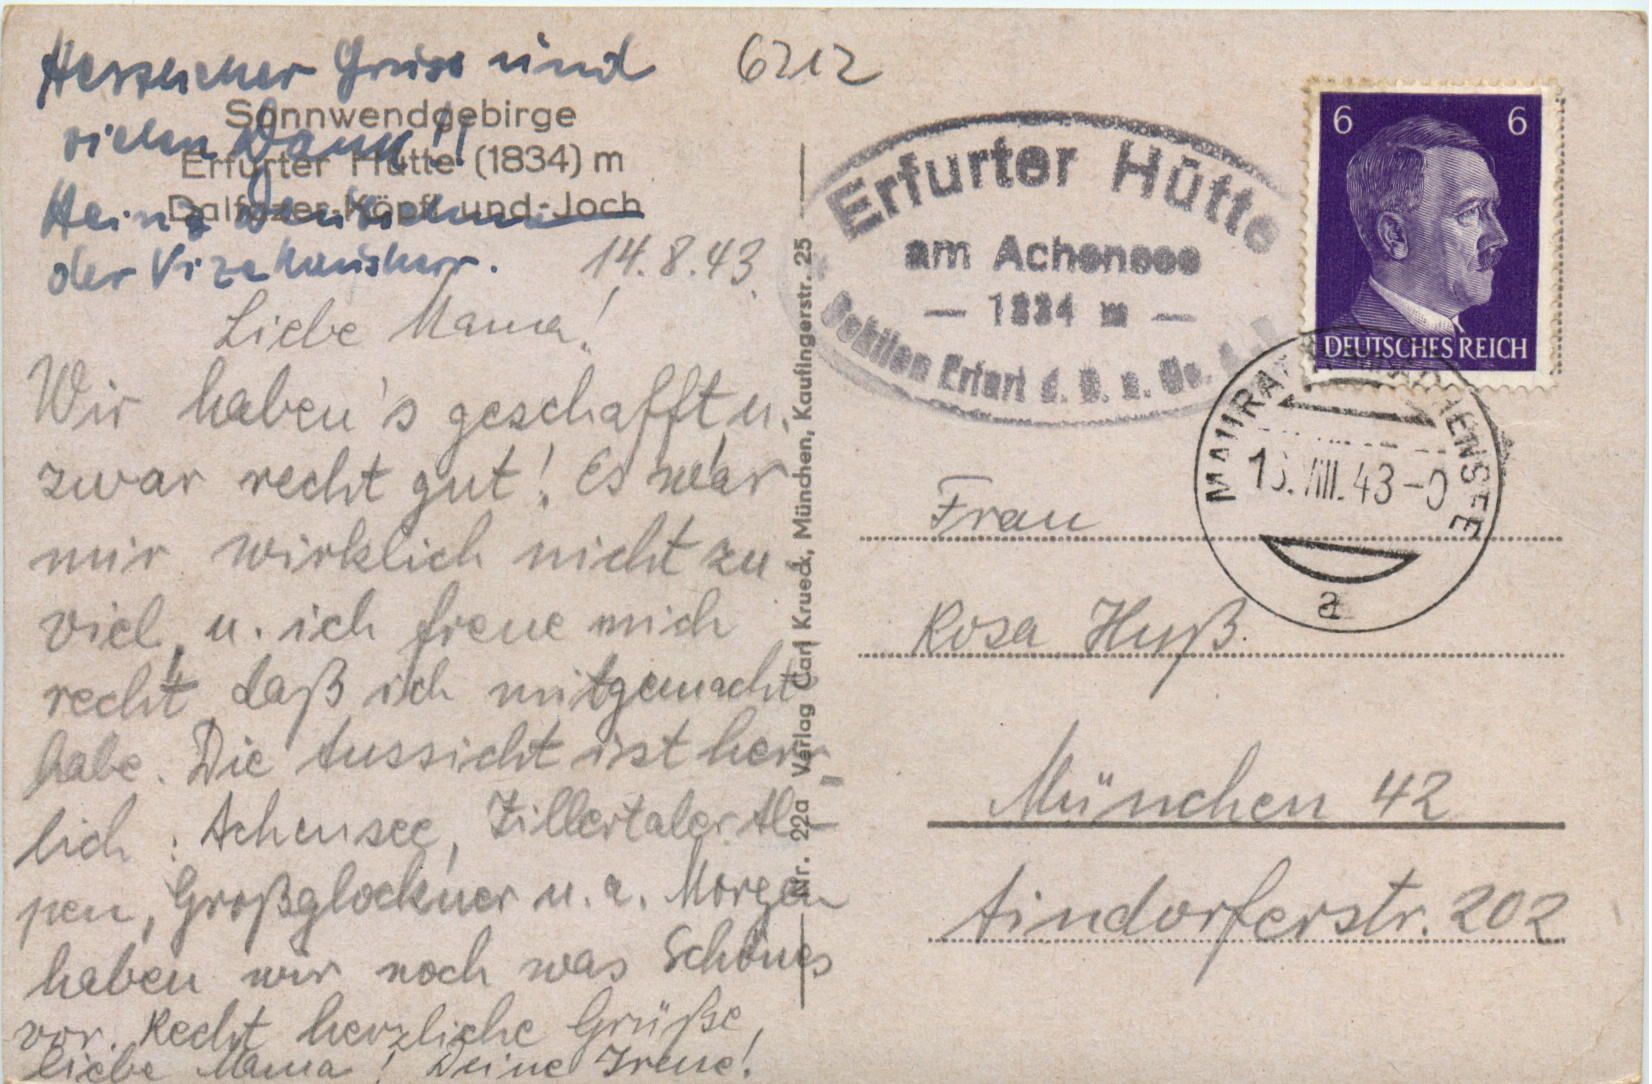 Herzlicher Gruss und
vielen Dank!!
Heinz
der Vizehausherr.
6212
Sonnwendgebirge
Erfurter Hütte (1834) m
Dalfazer Köpfl und-Joch
14.8.43
Liebe Mama!
Wir haben's geschafft u.
zwar recht gut! Es war
mir wirklich nicht zu
viel, u. ich freue mich
recht, daß ich mitgemacht
habe. Die Aussicht ist herr-
lich: Achensee, Zillertaler Al-
pen, Großglockner u. a. Morgen
haben wir noch was Schönes
vor. Recht herzliche Grüße,
liebe Mama! Deine Irene!
Nr. 22a Verlag Carl Krueck, München, Kaufingerstr. 25
Erfurter Hütte
am Achensee
— 1834 m —
Erfurt d. D.
6 6
DEUTSCHES REICH
MAURACH ACHENSEE
VIII.43-0
a
Frau
Rosa Huß.
München 42
Aindorferstr. 202